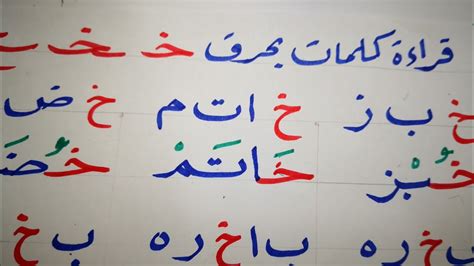 قراءة كلمات بحرف خـ ـخـ ـخ
خ ب ز خ ا ت م خ ض
خُبْز خَاتَمْ خُضَ
خ ر ه ب ا خ ر ه ب خ